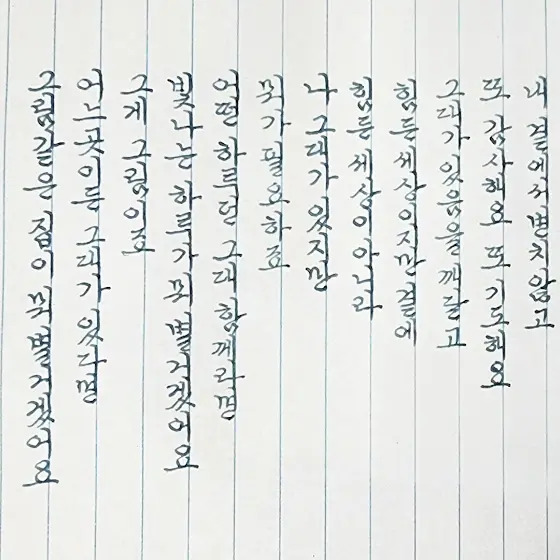 그림 같은 집이 뭐 별거겠어요
어느 곳이든 그대가 있다면
그게 그림이죠
빛나는 하루가 뭐 별거겠어요
어떤 하루던 그대 함께라면
뭐가 필요하죠
나 그대가 있지만
힘든 세상이 아니라
힘든 세상이지만 곁에
그대가 있음을 깨닫고
또 감사해요 또 기도해요
내 곁에서 변치 않고